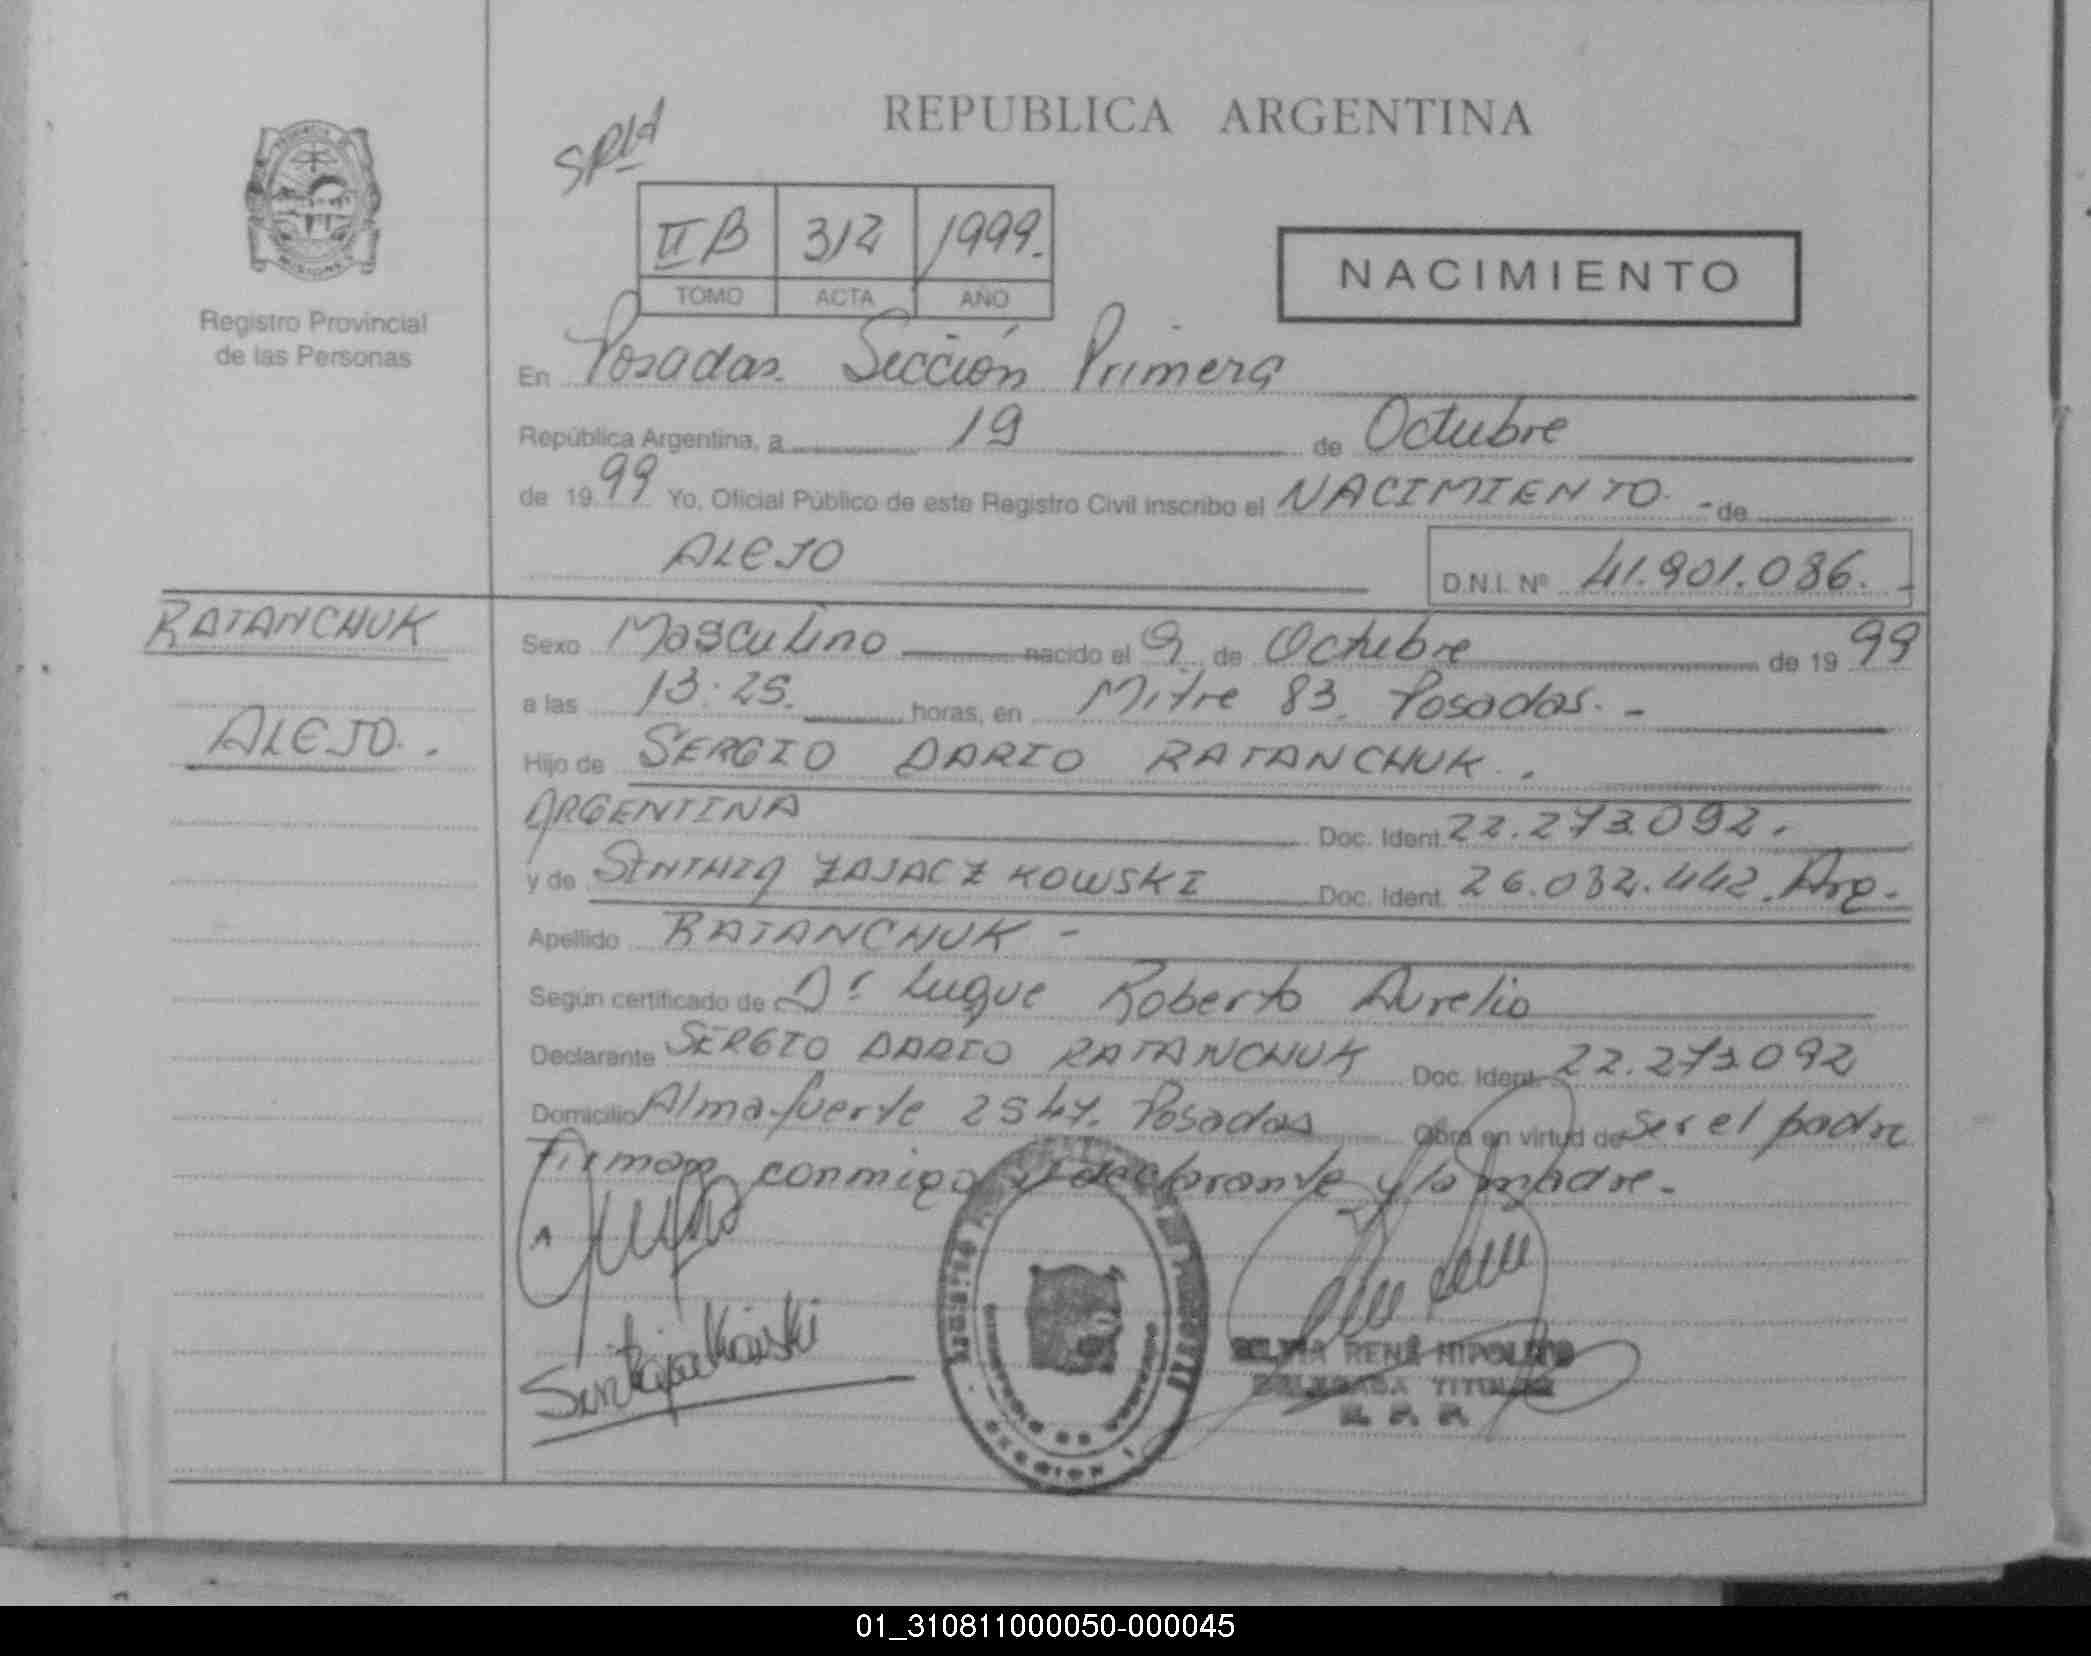 REPUBLICA ARGENTINA
II B 312 1999.
TOMO ACTA AÑO
NACIMIENTO
MISIONES
Registro Provincial
de las Personas
En Posadas. Sección Primera
República Argentina, a 19 de Octubre
de 1999 Yo, Oficial Público de este Registro Civil inscribo el NACIMIENTO - de
ALEJO
D.N.I. Nº 41.901.036. -
RATANCHUK
ALEJO.
Sexo Masculino nacido el 9 de Octubre de 1999
a las 13:25. horas, en Mitre 83. Posadas. -
Hijo de SERGIO DARIO RATANCHUK.
ARGENTINA Doc. Ident. 22.273.092.
y de SINTHIA ZAJACZKOWSKI Doc. Ident. 26.032.442. Arg.
Apellido RATANCHUK -
Según certificado de Dr. Luque Roberto Aurelio
Declarante SERGIO DARIO RATANCHUK Doc. Ident. 22.273.092
Domicilio Almafuerte 2547. Posadas Obra en virtud de ser el padre
Firman conmigo el declarante y la madre.-
SILVIA RENÉ HIPOLITO
DELEGADA TITULAR
R. P. P.
01_310811000050-000045